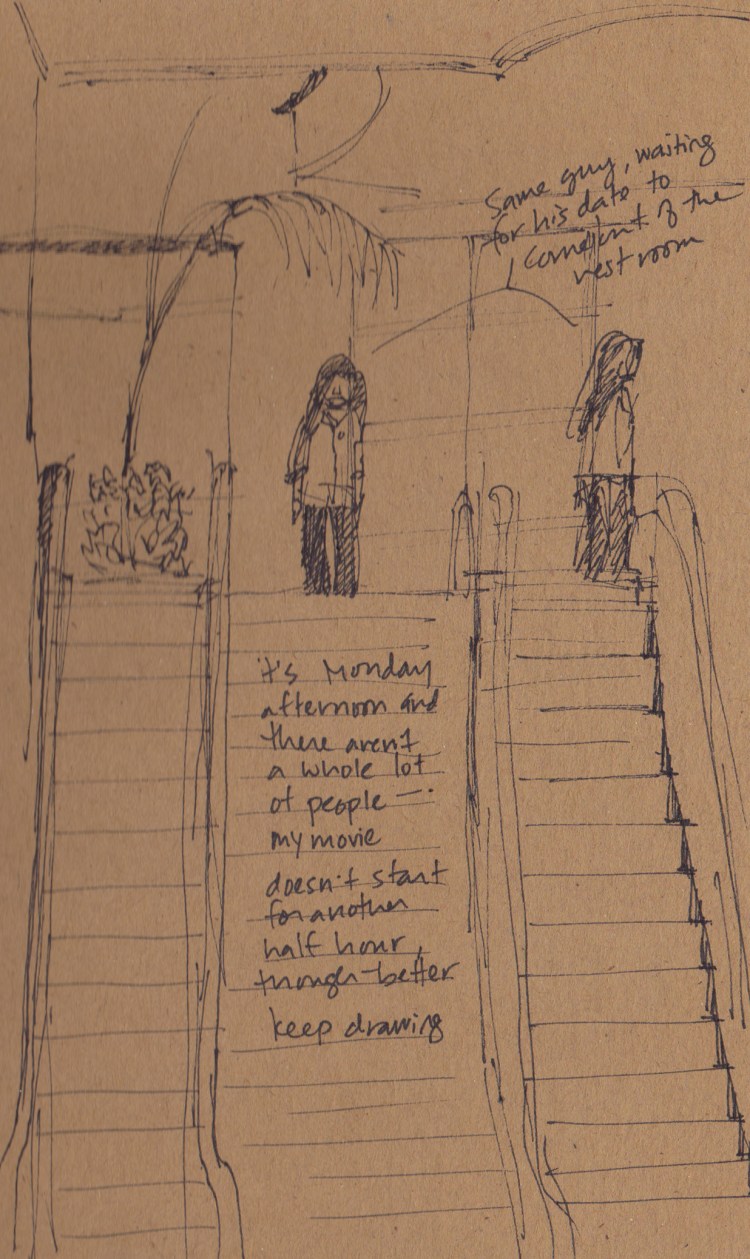 Same guy, waiting
for his date to
come out of the
rest room
it's Monday
afternoon and
there aren't
a whole lot
of people —.
my movie
doesn't start
for another
half hour,
though–better
keep drawing